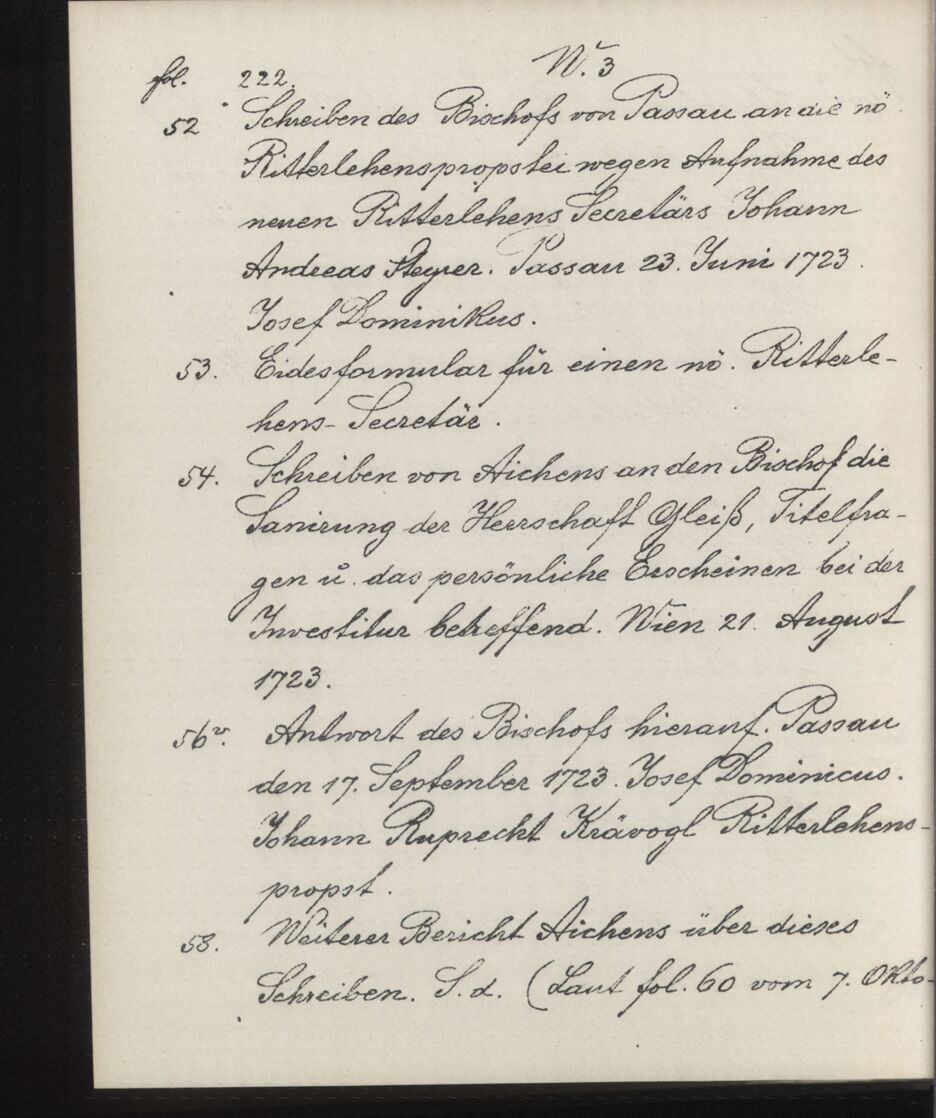 Nr. 3
fol. 222.
52 Schreiben des Bischofs von Passau an die nö.
Ritterlehenspropstei wegen Aufnahme des
neuen Ritterlehens Secretärs Johann
Andreas Steyrer. Passau 23. Juni 1723.
Josef Dominikus.
53. Eidesformular für einen nö. Ritterle-
hens-Secretär.
54. Schreiben von Aichens an den Bischof die
Sanirung der Herrschaft Gleiß, Titelfra-
gen u. das persönliche Erscheinen bei der
Investitur betreffend. Wien 21. August
1723.
56v. Antwort des Bischofs hierauf. Passau
den 17. September 1723. Josef Dominicus.
Johann Ruprecht Krävogl Ritterlehens-
propst.
58. Weiterer Bericht Aichens über dieses
Schreiben. S. d. (Laut fol. 60 vom 7. Okto-